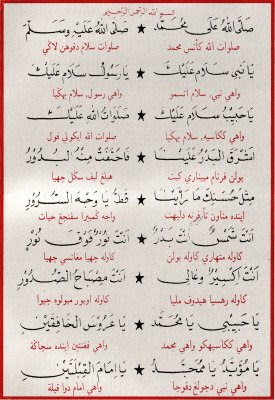 بسم الله الرحمن الرحيم
صَلَّى اللهُ عَلَى مُحَمَّد ★ صَلَّى اللهُ عَلَيْهِ وَسَلَّمَ
صلوات الله كأتس محمد صلوات سلام دڤوهن لاڬي
يَا نَبِي سَلَامْ عَلَيْكَ ★ يَا رَسُولْ سَلَامْ عَلَيْكَ
واهي نبي, سلام اتسمو واهي رسول, سلام بهڬيا
يَا حَبِيبْ سَلَامْ عَلَيْكَ ★ صَلَوَاتُ اللهْ عَلَيْكَ
واهي ككاسيه, سلام بهڬيا صلوات الله ايكوتي ڤول
اَشْرَقَ الْبَدْرُ عَلَيْنَا ★ فَاخْتَفَتْ مِنْهُ الْبُدُوْرُ
بولن ڤرنام مپيناري كيت هيلڠ لڤ سكل جهيا
مِثْلَ حُسْنِكَ مَا رَأَيْنَا ★ قَطُّ يَا وَجْهَ السُّرُوْرِ
ايندە تأ ڤرنه دليهت واجه ڬمبيرا سڤنجڠ حيات
اَنْتَ شَمْسٌ اَنْتَ بَدْرٌ ★ اَنْتَ نُوْرٌ فَوْقَ نُوْرٍ
كاوله متهاري كاوله بولن كاوله جهيا جهيا
اَنْتَ اِكْسِيْرٌ وَغَالِي ★ اَنْتَ مِصْبَاحُ الصُّدُوْرِ
كاوله رهسيا هيدوڤ مليا كاوله اوبور جيوا
يَا حَبِيْبِيْ يَا مُحَمَّد ★ يَا عَرُوْسَ الْخَافِقَيْنِ
واهي ككاسيهكو واهي محمد واهي ڤڠنتين ايندە
يَا مُؤَيَّدْ يَا مُمَجَّدْ ★ يَا اِمَامَ الْقِبْلَتَيْنِ
واهي نبي دجولڠ دڤوجا واهي امام دوا قبلة